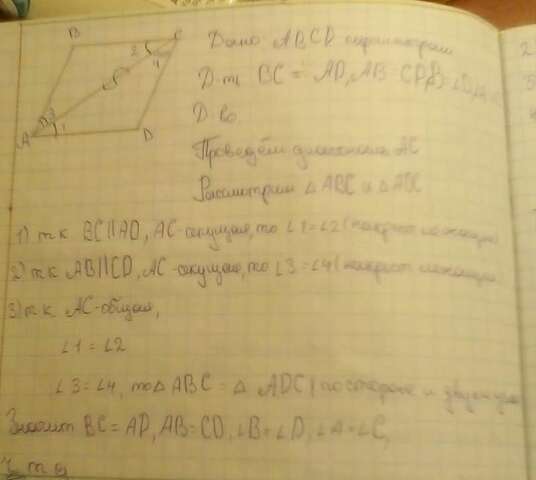 B
C
2
4
3
1
A
D
Дано ABCD параллелограмм
Д-ть BC = AD, AB = CD, ∠B = ∠D
Д-во
Проведём диагональ AC
Рассмотрим △ABC и △ADC
1) т к BC||AD, AC-секущая, то ∠1=∠2 (накрест лежащие)
2) т к AB||CD, AC-секущая, то ∠3=∠4 (накрест лежащие
3) т к AC-общая,
∠1=∠2
∠3=∠4, то △ABC = △ADC (по стороне и двум
Значит BC=AD, AB=CD, ∠B=∠D, ∠A=∠C,
2